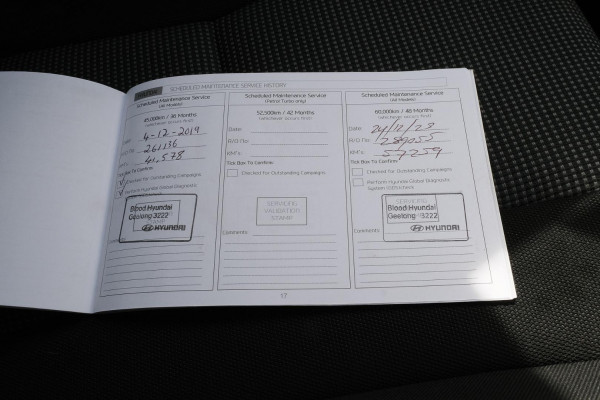 SCHEDULED MAINTENANCE SERVICE HISTORY
Scheduled Maintenance Service
(All Models)
45,000km / 36 Months
(whichever occurs first)
4-12-2019
261136
41,578
Tick Box To Confirm:
Checked for Outstanding Campaigns
Perform Hyundai Global Diagnostic
Blood Hyundai
Geelong 3222
HYUNDAI
Scheduled Maintenance Service
(Petrol Turbo only)
52,500km / 42 Months
(whichever occurs first)
Date:
R/O No:
KM's:
Tick Box To Confirm:
Checked for Outstanding Campaigns
SERVICING
VALIDATION
STAMP
Comments:
Scheduled Maintenance Service
(All Models)
60,000km / 48 Months
(whichever occurs first)
Date: 24/12/23
R/O No: 289055
KM's: 57259
Tick Box To Confirm:
Checked for Outstanding Campaigns
Perform Hyundai Global Diagnostic
System (GDS) check
SERVICING
Blood Hyundai
Geelong 3222
HYUNDAI
Comments:
17